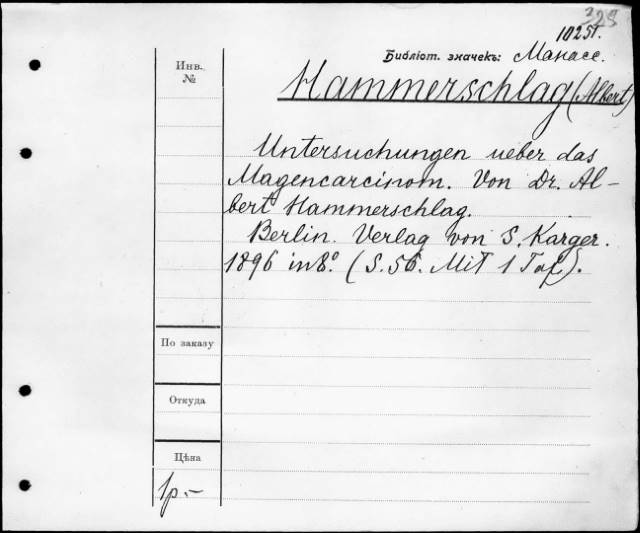 328
10251.
Библіот. значекъ: Манассе.
Инв. №
Hammerschlag (Albert)
Untersuchungen ueber das
Magencarcinom. Von Dr. Al-
bert Hammerschlag.
Berlin. Verlag von S. Karger.
1896 in 8.° (S. 56. Mit 1 Taf).
По заказу
Откуда
Цѣна
1р.-